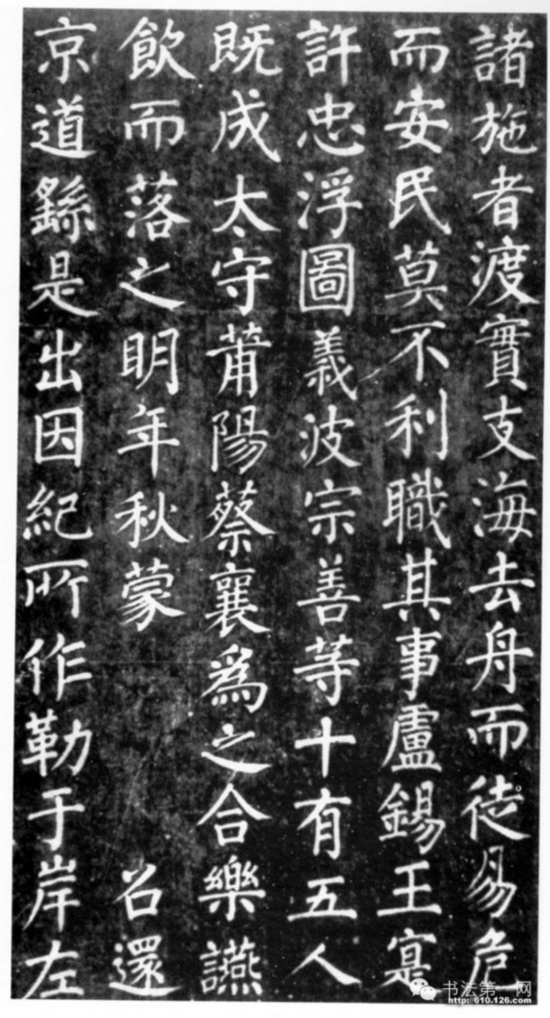 諸施者渡實支海去舟而徒易危
而安民莫不利職其事盧錫王寔
許忠浮圖義波宗善等十有五人
既成太守莆陽蔡襄爲之合樂讌
飲而落之明年秋蒙 召還
京道繇是出因紀所作勒于岸左
书法第一网
http: 610.126.com